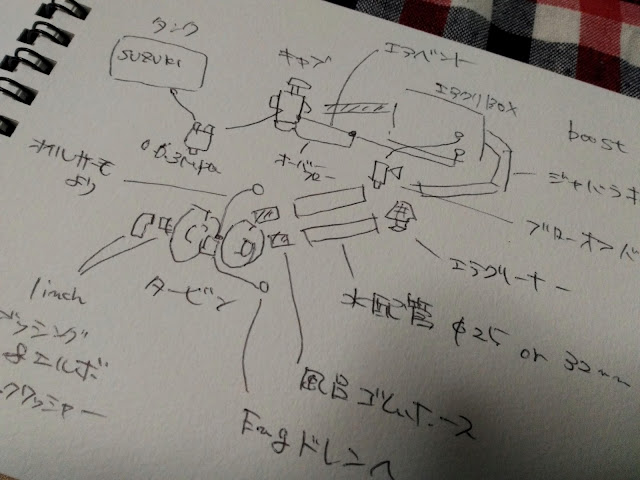 タンク
SUZUKI
キャブ
エアベント
エアクリBOX
boost
0.03Mpa
オーバー
フロー
オイルサーモ
より
ジャバラホ
ブローオフバ
エアクリーナー
タービン
1inch
ブッシング
&エルボ
クワッシャー
水配管 φ25 or 32mm
風呂ゴムホース
Engドレンへ